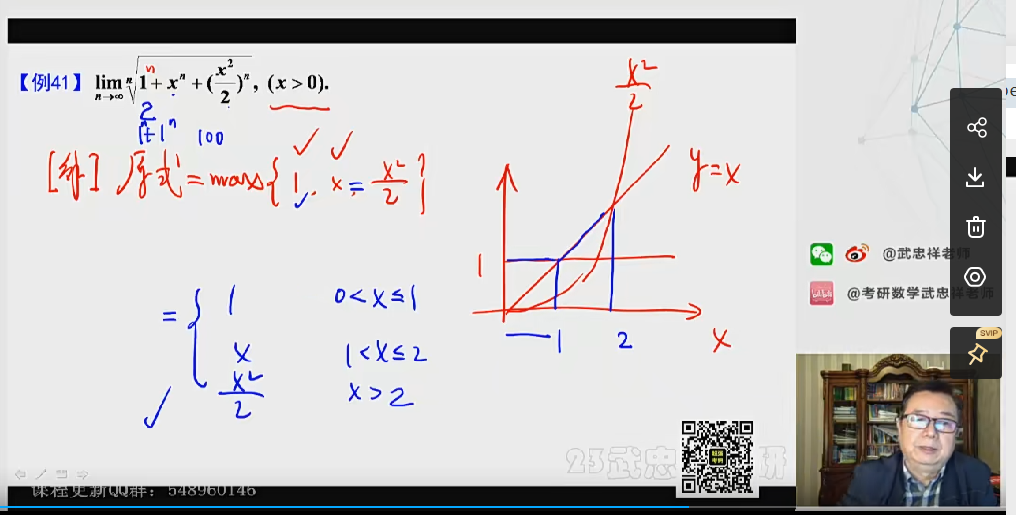 【例41】 lim n→∞ ⁿ√(1ⁿ + xⁿ + (x²/2)ⁿ), (x > 0).
2
1+1ⁿ 100
[解] 原式 = max{1, x, x²/2}
= { 1 0<x≤1
x 1<x≤2
x²/2 x>2
x²/2
y=x
1
1 2 x
@武忠祥老师
@考研数学武忠祥老师
SVIP
课程更新QQ群：548960146